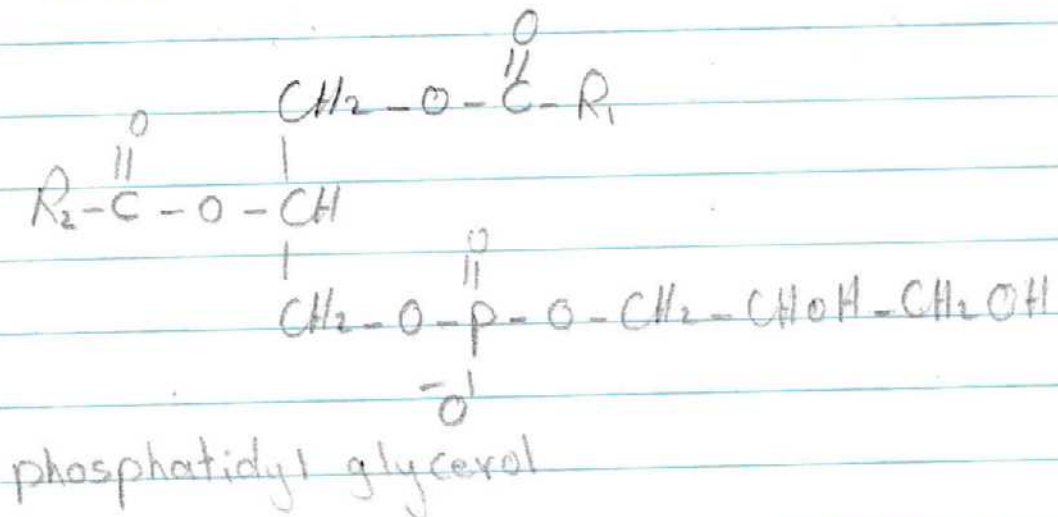 O
||
CH2 - O - C - R1
O
||
|
R2 - C - O - CH
|
O
||
CH2 - O - P - O - CH2 - CHOH - CH2OH
|
-O
phosphatidyl glycerol